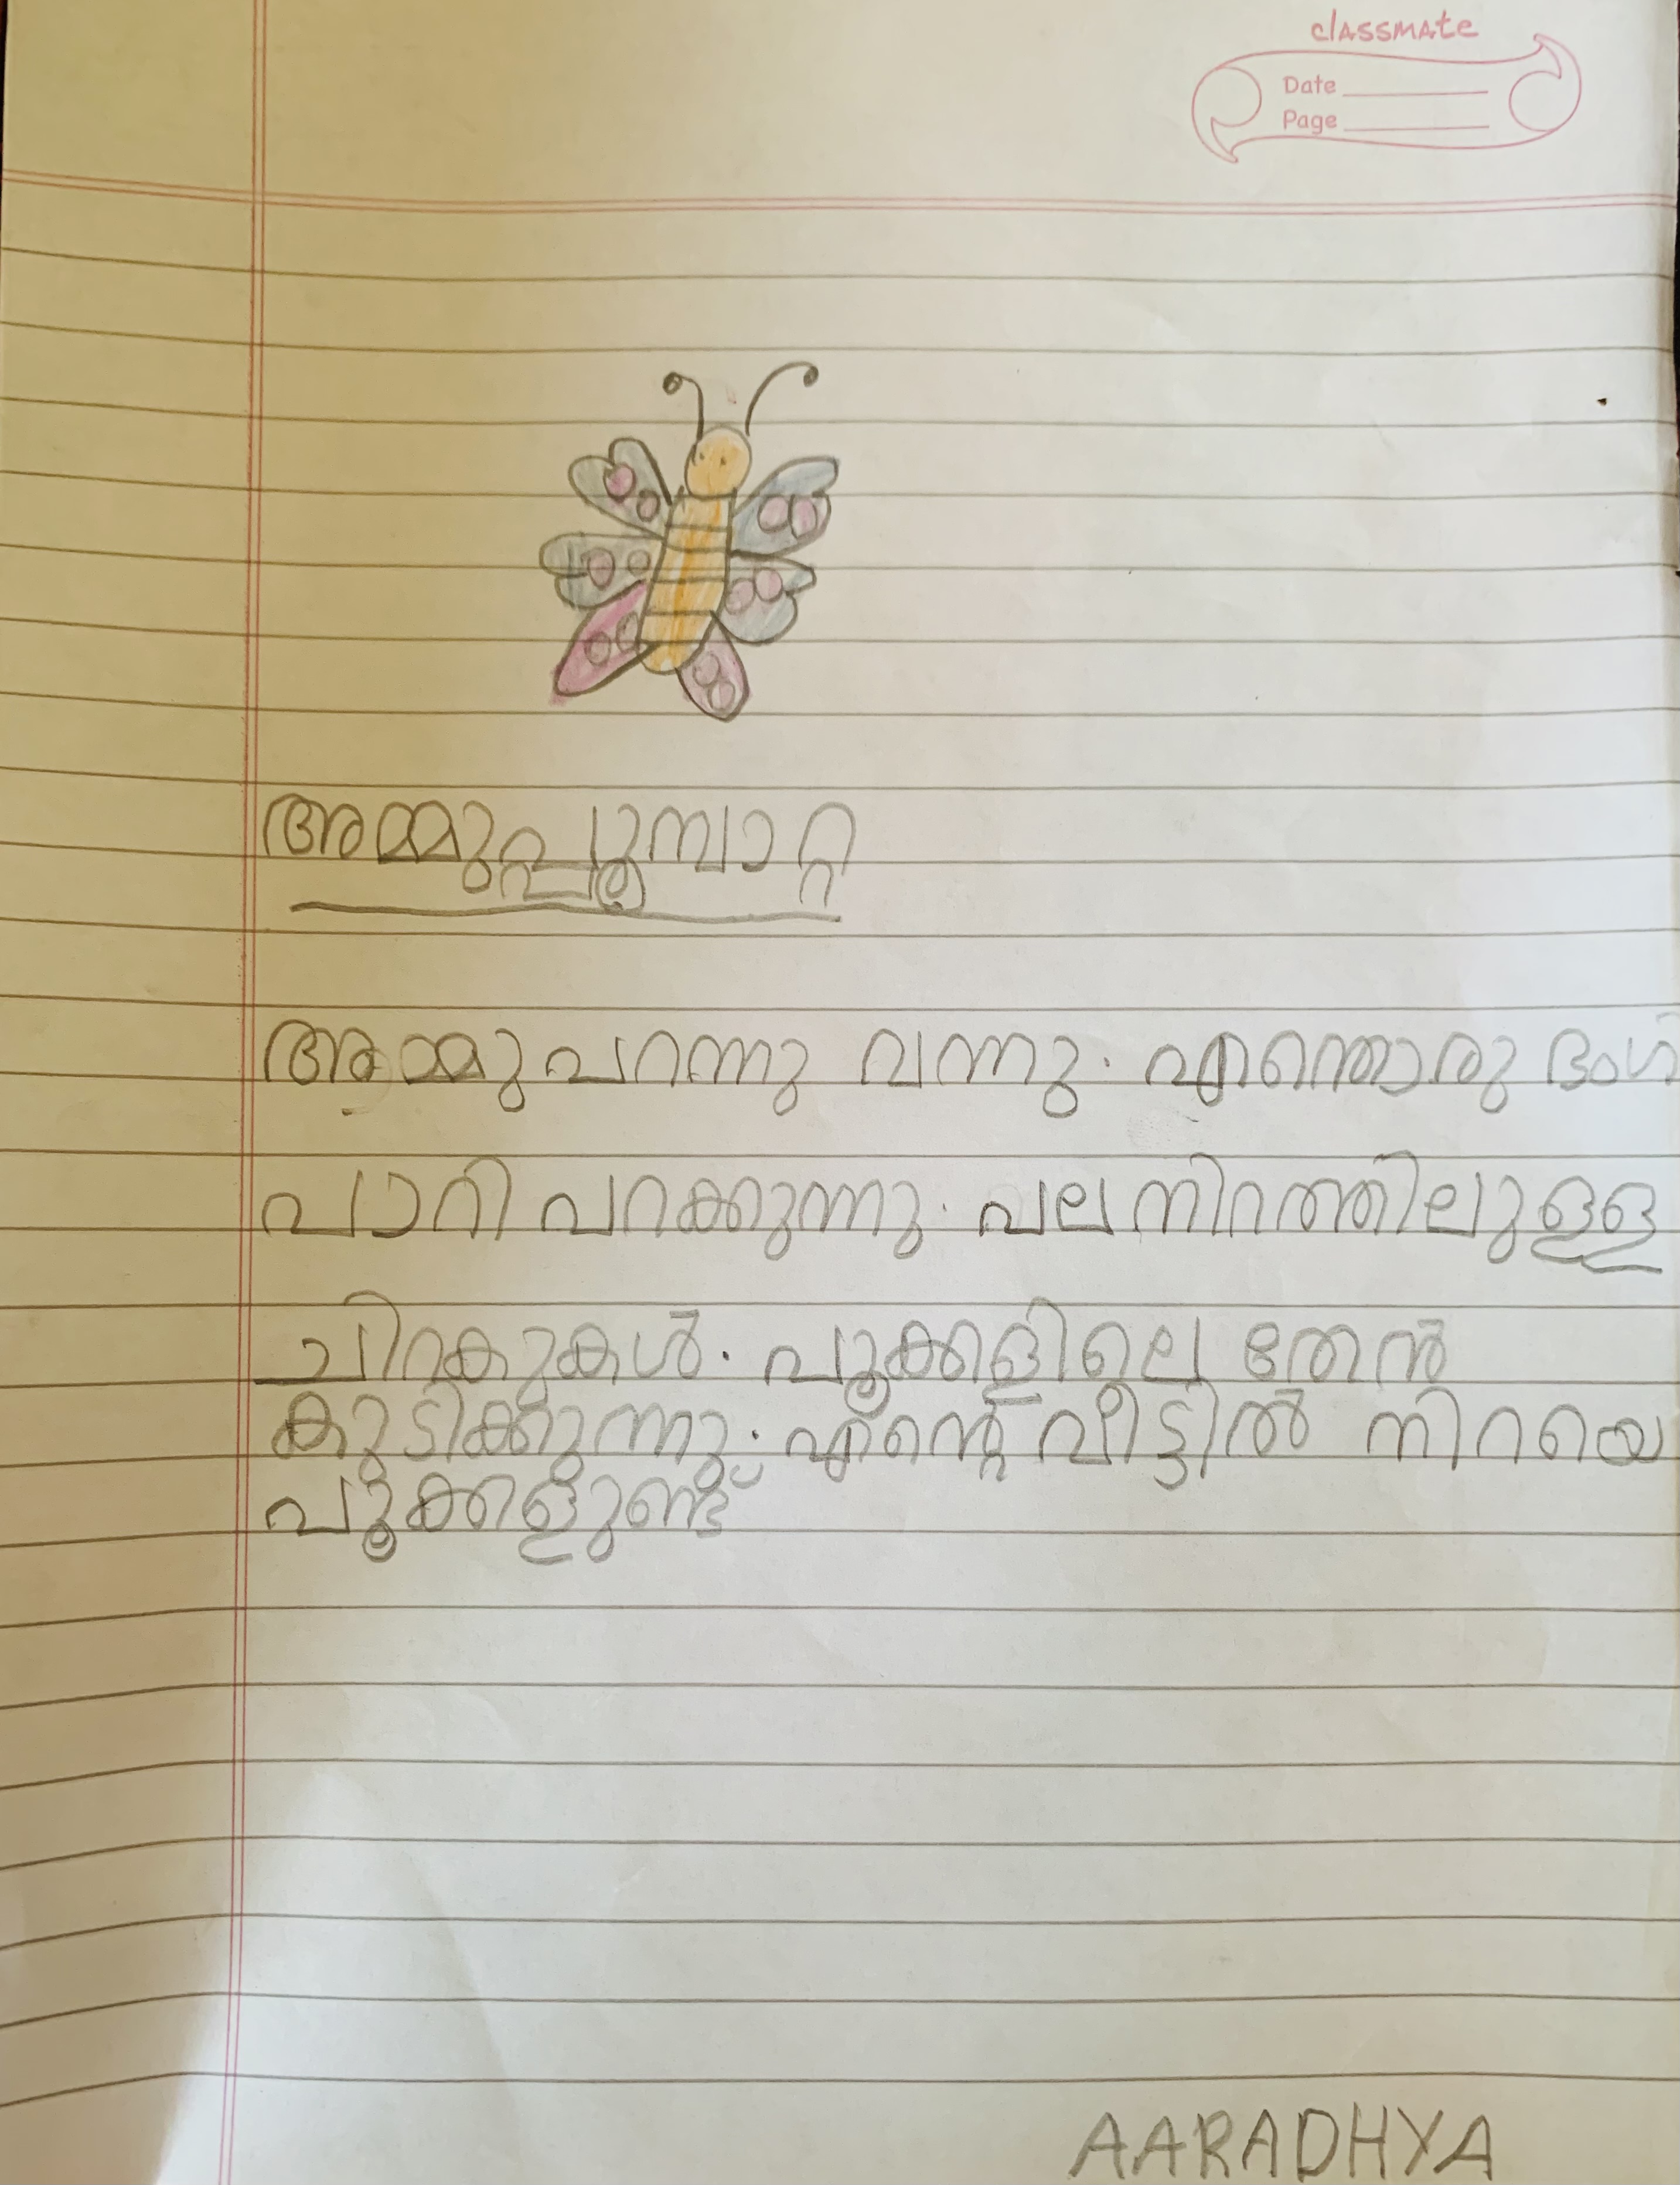 classmate
Date
Page
അമ്മുപ്പൂമ്പാറ്റ
അമ്മു പറന്നു വന്നു. എന്തൊരു ഭംഗി
പാറി പറക്കുന്നു. പല നിറത്തിലുള്ള
ചിറകുകൾ. പൂക്കളിലെ തേൻ
കുടിക്കുന്നു. എന്റെ വീട്ടിൽ നിറയെ
പൂക്കളുണ്ട്
AARADHYA